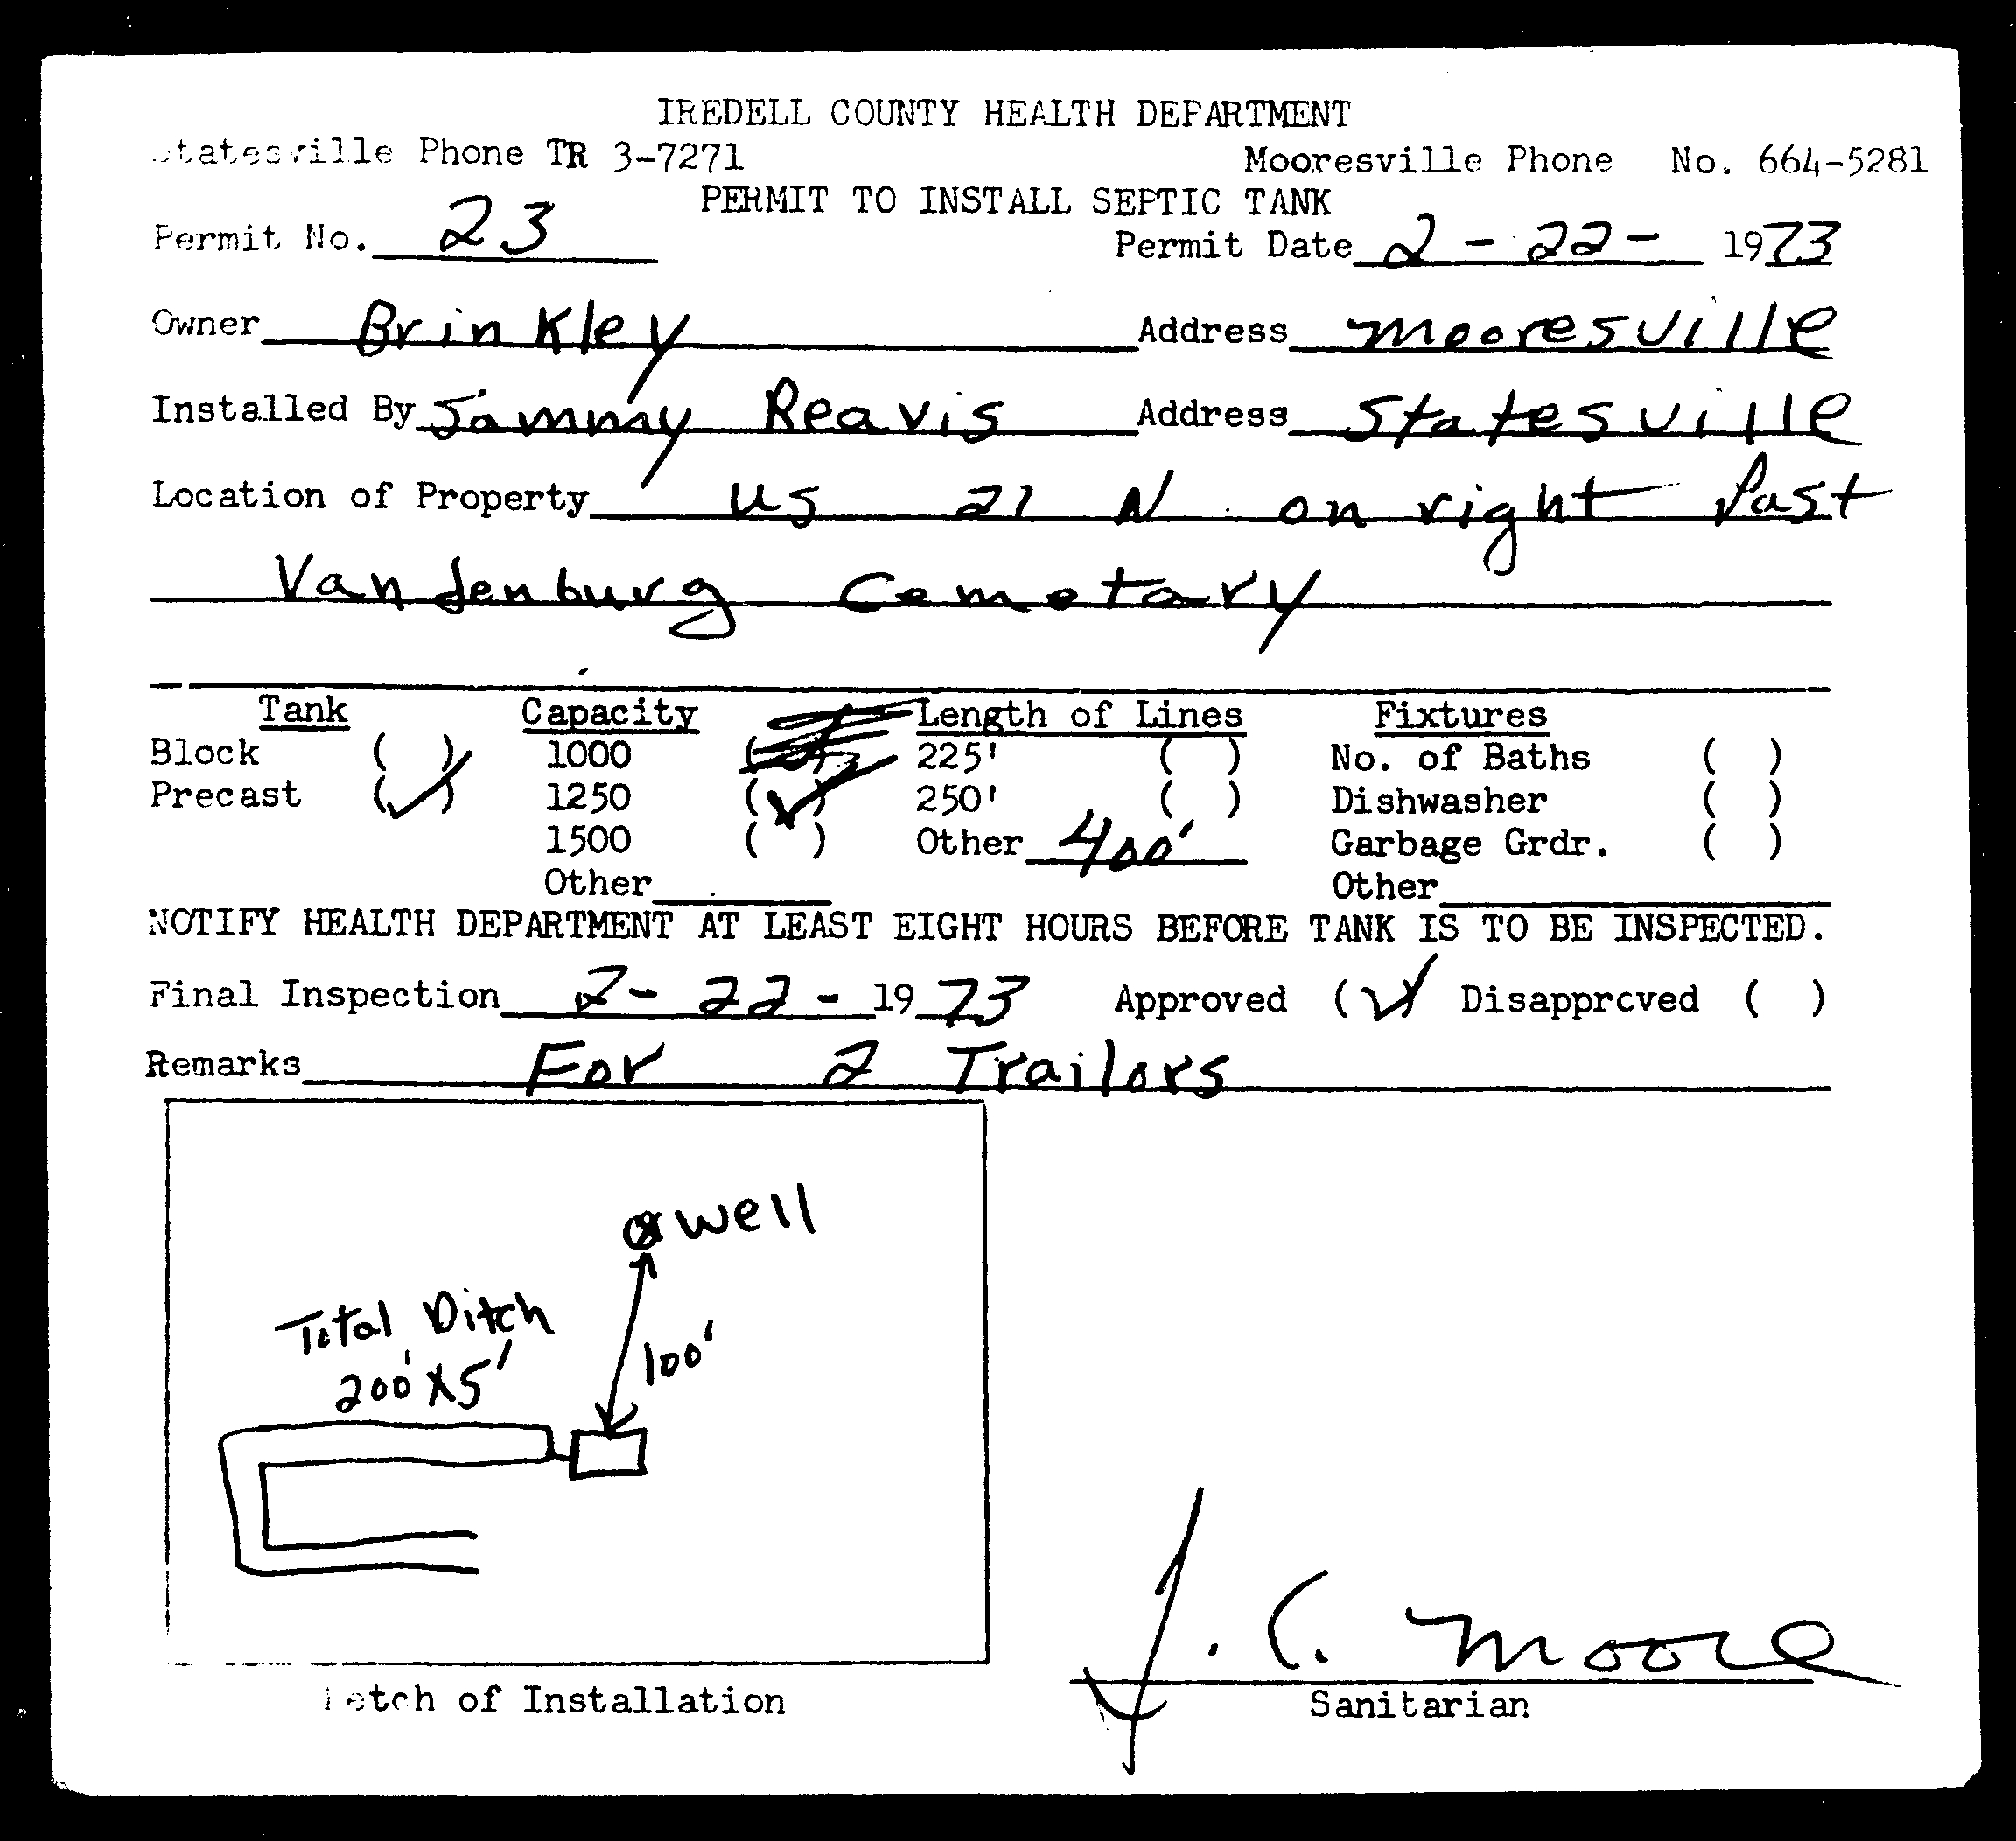 IREDELL COUNTY HEALTH DEPARTMENT
Statesville Phone TR 3-7271 Mooresville Phone No. 664-5281
PERMIT TO INSTALL SEPTIC TANK
Permit No. 23 Permit Date 2 - 22 - 1973
Owner Brinkley Address Mooresville
Installed By Jammy Reavis Address Statesville
Location of Property US 21 N on right Past
Vandenburg Cemetary
Tank Capacity Length of Lines Fixtures
Block ( ) 1000 ( ) 225' ( ) No. of Baths ( )
Precast (✓) 1250 (✓) 250' ( ) Dishwasher ( )
1500 ( ) Other 400' Garbage Grdr. ( )
Other Other
NOTIFY HEALTH DEPARTMENT AT LEAST EIGHT HOURS BEFORE TANK IS TO BE INSPECTED.
Final Inspection 2- 22 - 1973 Approved (✓) Disapproved ( )
Remarks For 2 Trailors
well
Total Ditch
100'
200' X 5'
J. C. Moore
ketch of Installation Sanitarian